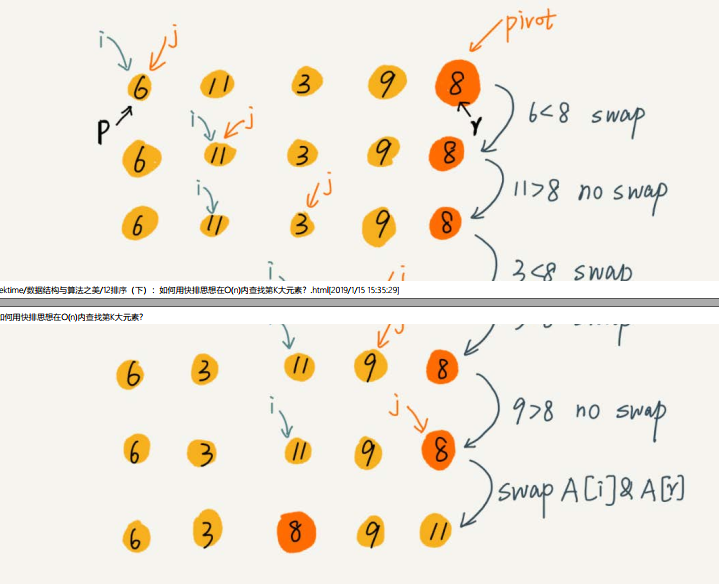 pivot
i j
6 11 3 9 8
p r
6<8 swap
i j
6 11 3 9 8
11>8 no swap
i j
6 11 3 9 8
3<8 swap
i j
ektime/数据结构与算法之美/12排序（下）：如何用快排思想在O(n)内查找第K大元素？.html[2019/1/15 15:35:29]
如何用快排思想在O(n)内查找第K大元素？
j
6 3 11 9 8
9>8 no swap
i j
6 3 11 9 8
swap A[i]&A[r]
6 3 8 9 11